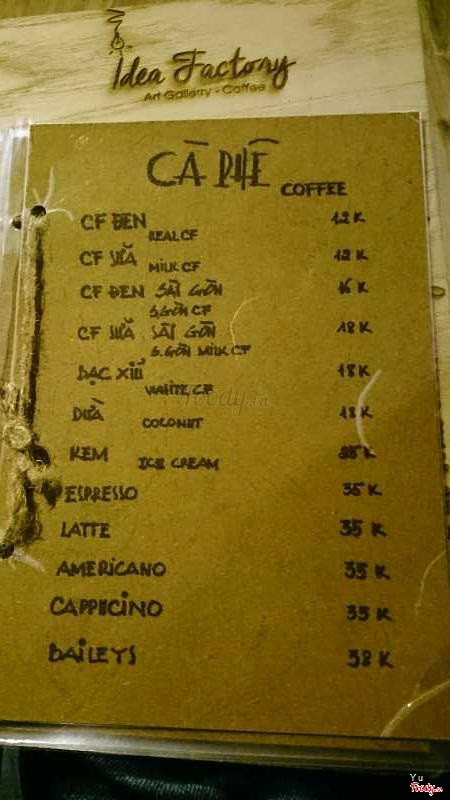 Idea Factory
Art Gallerry - Coffee
CÀ PHÊ COFFEE
CF ĐEN 12 K
REAL CF
CF SỮA 12 K
MILK CF
CF ĐEN SÀI GÒN 16 K
S.GÒN CF
CF SỮA SÀI GÒN 18 K
S.GÒN MILK CF
BẠC XỈU 18 K
WHITE CF
DỪA 18 K
COCONUT
KEM K
ICE CREAM
ESPRESSO 35 K
LATTE 35 K
AMERICANO 35 K
CAPPUCINO 35 K
BAILEYS 38 K
foody.vn
Yu
Foody.vn